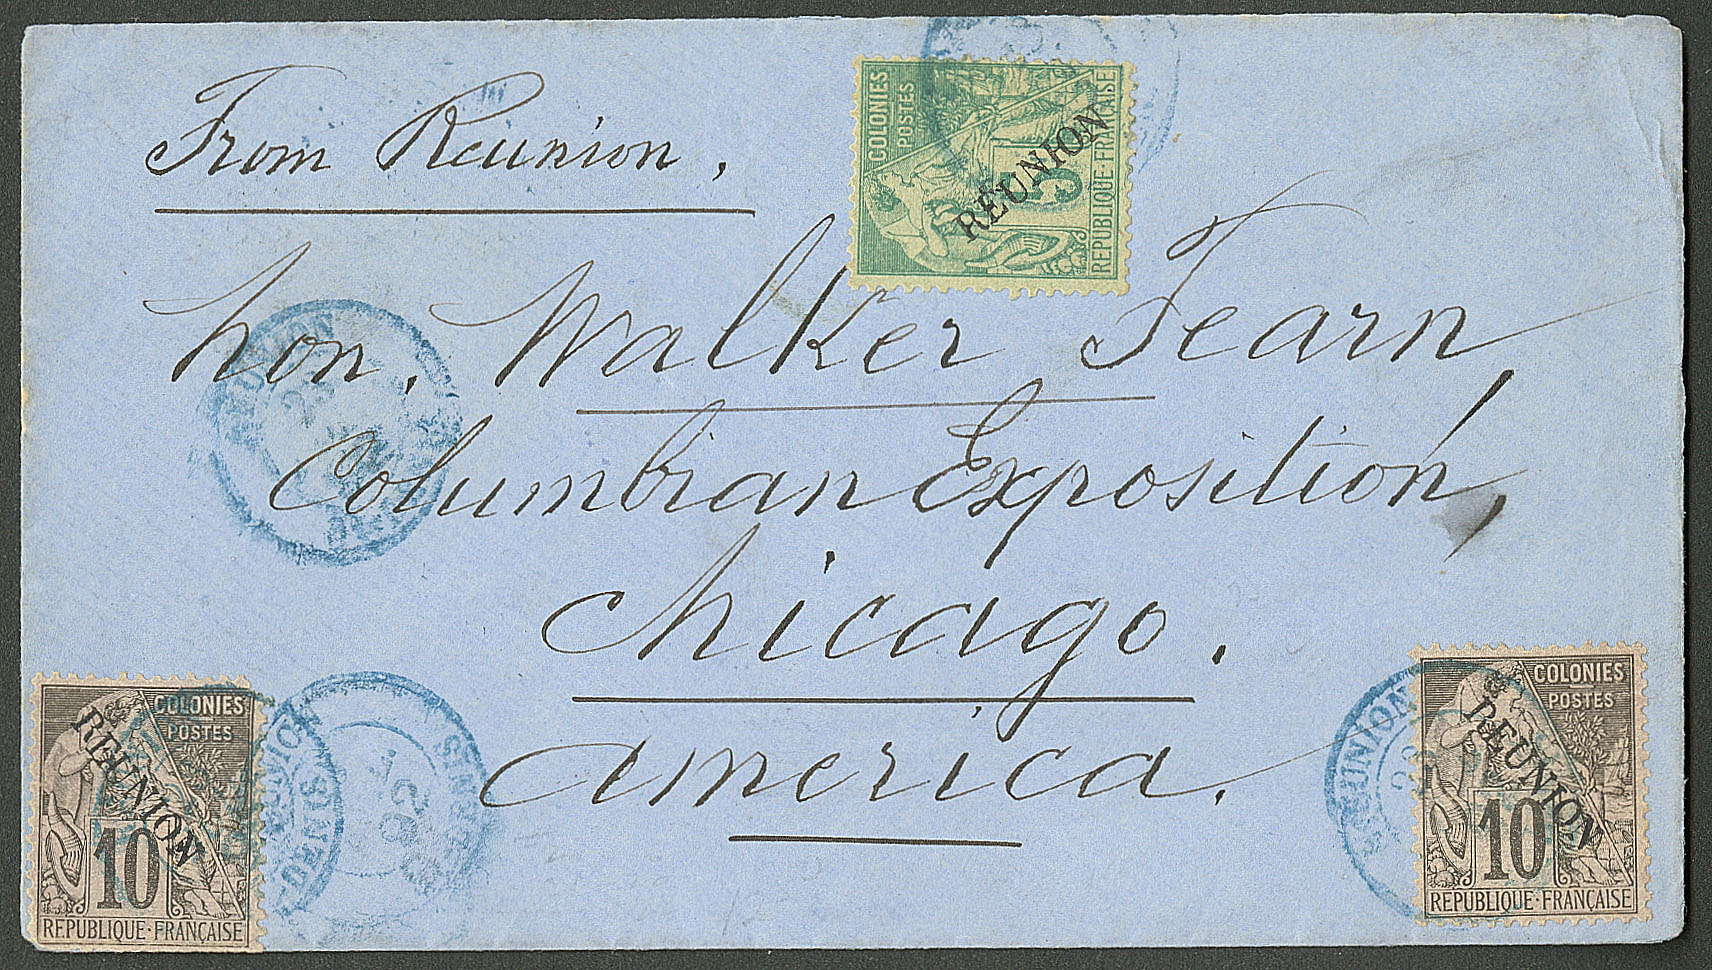 From Reunion,
COLONIES
POSTES
5
RÉUNION
REPUBLIQUE·FRANÇAISE
Hon. Walker Fearn
Columbian Exposition,
Chicago.
America.
REUNION
ST DENIS
92
COLONIES
POSTES
RÉUNION
10
REPUBLIQUE·FRANÇAISE
COLONIES
POSTES
RÉUNION
10
REPUBLIQUE·FRANÇAISE